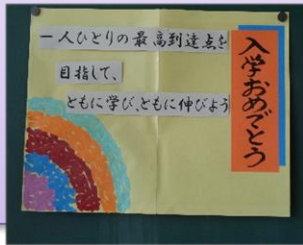 入学おめでとう
一人ひとりの最高到達点を
目指して、
ともに学び、ともに伸びよう